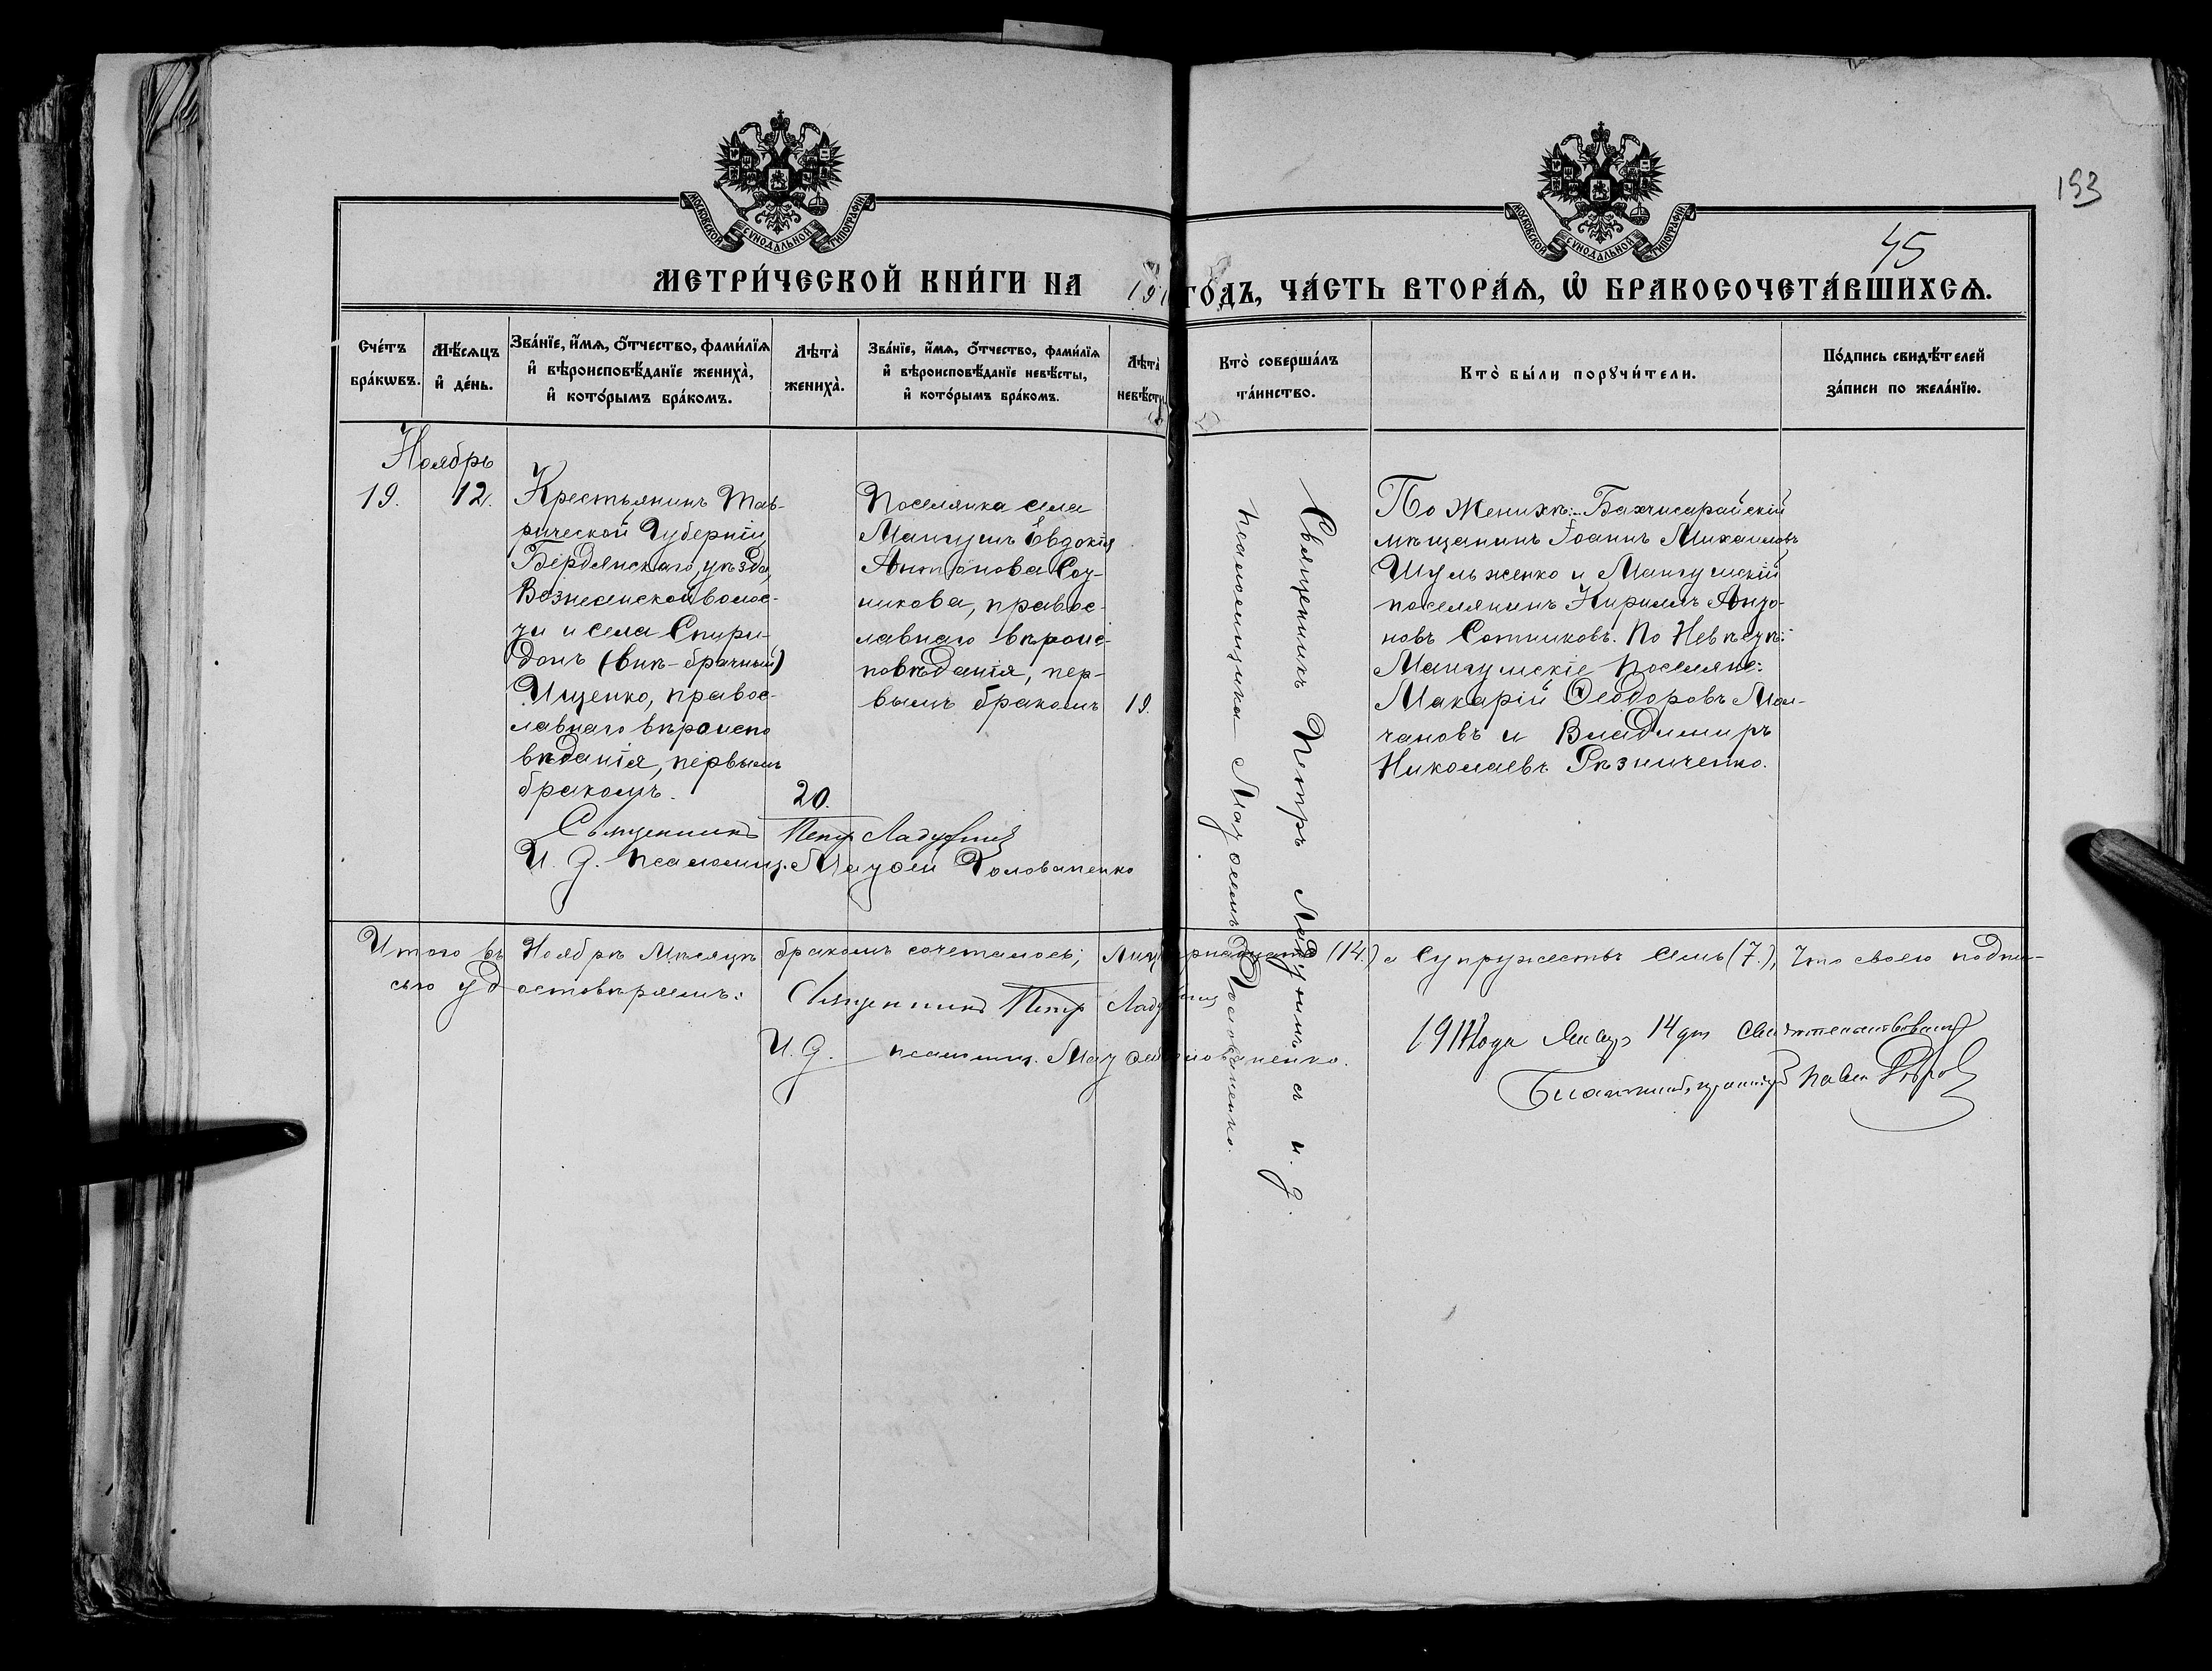 193
45
МОСКОВСКОЙ СУНОДАЛЬНОЙ ТИПОГРАФІИ
МОСКОВСКОЙ СУНОДАЛЬНОЙ ТИПОГРАФІИ
МЕТРИ́ЧЕСКОЙ КНИ́ГИ НА 191 ГОДЪ, ЧА́СТЬ ВТОРА́Я, Ѽ БРАКОСОЧЕТА́ВШИХСЯ.
Сче́тъ бра́кѡвъ.
Мѣ́сяцъ и҆ де́нь.
Зва́нїе, и҆́мѧ, ѻ҆́тчество, фами́лїѧ и҆ вѣроисповѣ́данїе жениха̀, и҆ кото́рымъ бра́комъ.
Лѣта̀ жениха̀.
Зва́нїе, и҆́мѧ, ѻ҆́тчество, фами́лїѧ и҆ вѣроисповѣ́данїе невѣ́сты, и҆ кото́рымъ бра́комъ.
Лѣта̀ невѣ́сты
Кто̀ соверша́лъ та́инство.
Кто̀ бы́ли порꙋчи́тели.
По́дпись свидѣ́телей за́писи по жела́нїю.
Ноябрь
19.
12.
Крестьянинъ Тав-
рической Губерніи,
Бердянскаго уѣзда,
Вознесенской волос-
ти и села Спири-
донъ (внѣ-брачный)
Ищенко, правос-
лавнаго вѣроиспо
вѣданія, первымъ
бракомъ.
20.
Поселянка села
Мангушъ Евдокія
Антонова Сот-
никова, правос-
лавнаго вѣроис-
повѣданія, пер-
вымъ бракомъ
19.
Священникъ Петръ Ладунинъ съ и. д.
псаломщика Маноемъ Голованенко.
По Женихѣ:- Бахчисарайскій
мѣщанинъ Іоаннъ Михаиловъ
Шульженко и Мангушскій
поселянинъ Кириллъ Анто-
новъ Сотниковъ. По Невѣстѣ:
Мангушскіе поселяне:
Макарій Ѳеодоровъ Мол-
чановъ и Владиміръ
Николаевъ Рѣзниченко.
Священникъ Петръ
И. д. псаломщ. Голованенко
Итого въ Ноябрѣ Мѣсяцѣ бракомъ сочеталось; (14.) а Супружествъ Семь (7.), что своею подпи-
сью удостовѣряемъ: Священникъ Петръ
И. д. псаломщ. Голованенко.
14 дня Свидѣтельствовалъ
Благочинный, Священникъ Павелъ